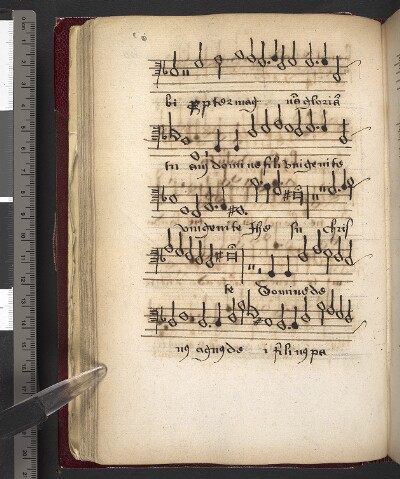 bi ꝓpter mag nā gloriā
tu am domine fili vnigenite
vnigenite Jhe su chris
te Domine de
us agnus de i filius pa